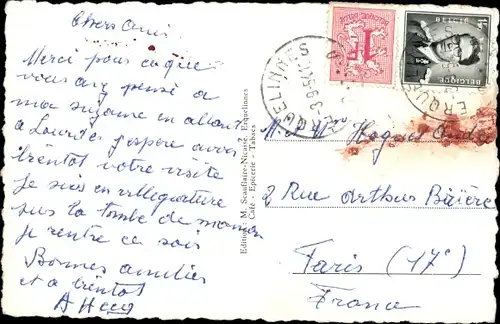 Chers Amis
Merci pour ce que
vous avez pensé a
ma suzanne en allant
a Lourdes j'espere avoir
bientôt votre visite
je suis en villegiature
sur la tombe de maman
je rentre ce soir
Bonnes amitiés
et a bientot
Editions : M. Scauflaire-Nicaise, Erquelinnes
Café - Epicerie - Tabacs
ERQUELINNES
BELGIQUE
M. et M
2 Rue Arthus
Paris (17e)
France